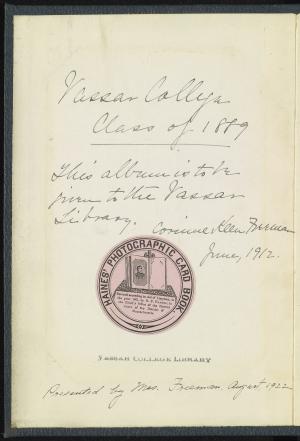 Vassar College
Class of 1889
This album is to be
given to the Vassar
Library. Corinne Keen Freeman
June, 1912.
HAINES' PHOTOGRAPHIC CARD BOOK
VASSAR COLLEGE LIBRARY
Presented by Mrs. Freeman, August 1922